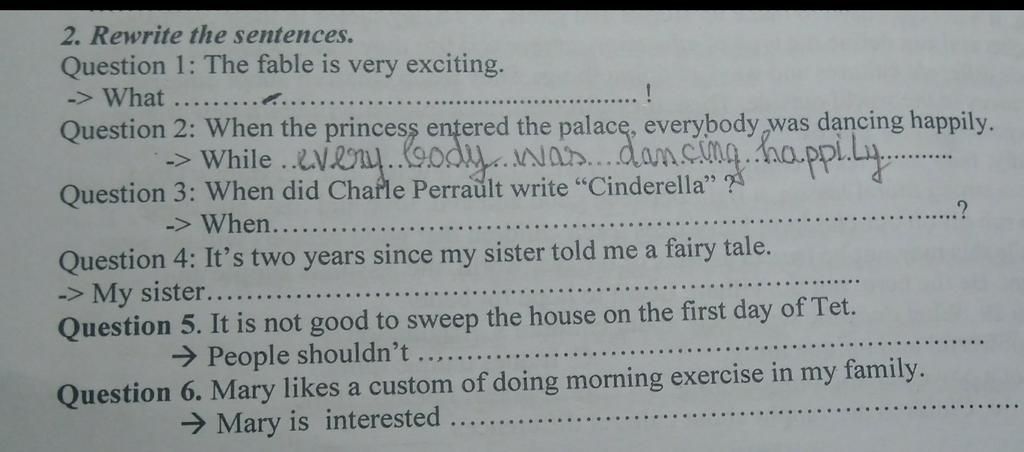 2. Rewrite the sentences.
Question 1: The fable is very exciting.
-> What .................................................................. !
Question 2: When the princess entered the palace, everybody was dancing happily.
-> While ..every body was dancing happily..........
Question 3: When did Charle Perrault write “Cinderella” ?
-> When.............................................................................?
Question 4: It's two years since my sister told me a fairy tale.
-> My sister.......................................................................
Question 5. It is not good to sweep the house on the first day of Tet.
→ People shouldn't ...............................................................
Question 6. Mary likes a custom of doing morning exercise in my family.
→ Mary is interested ...............................................................